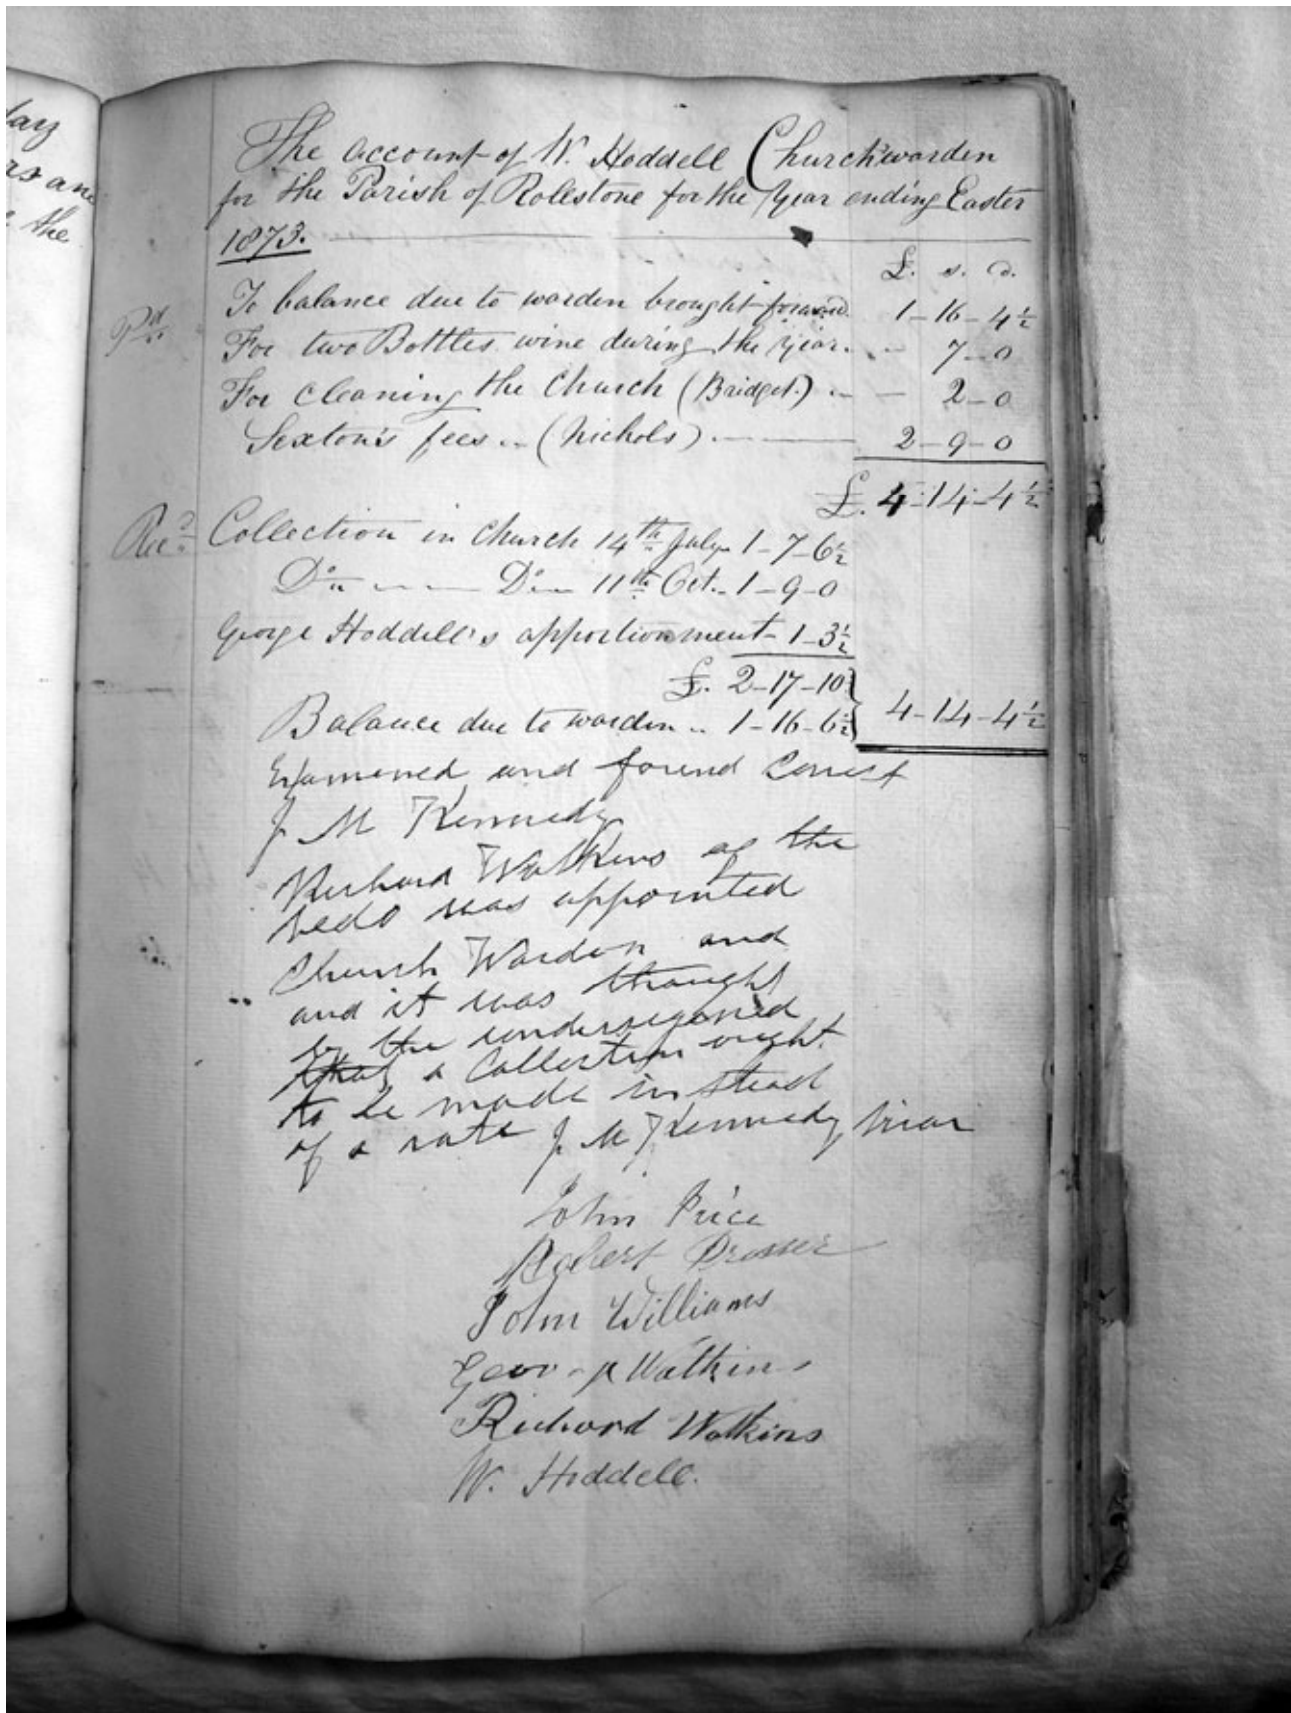 lay
rs and
the
The account of W. Hoddell Churchwarden
for the Parish of Rollstone for the Year ending Easter
1873.
£. s. d.
Pd. To balance due to warden brought forward. 1-16-4½
For two Bottles wine during the year. .. - 7-0
For cleaning the Church (Bridget.) .. - 2-0
Sexton's fees .. (Nichols) . 2-9-0
£. 4-14-4½
Recd. Collection in Church 14th July 1-7-6½
Do. Do. 11th Oct. 1-9-0
George Hoddell's apportionment - 1-3½
£. 2-17-10
Balance due to warden .. 1-16-6½ 4-14-4½
Examened and found Correct
J M Kennedy
Richard Watkins of the
was appointed
Church Warden and
and it was thought
by the undersigned
that a Collection ought
to be made in stead
of a rate J M Kennedy Vicar
John Price
Robert Prosser
John Williams
George Watkins
Richard Watkins
W. Hoddell.